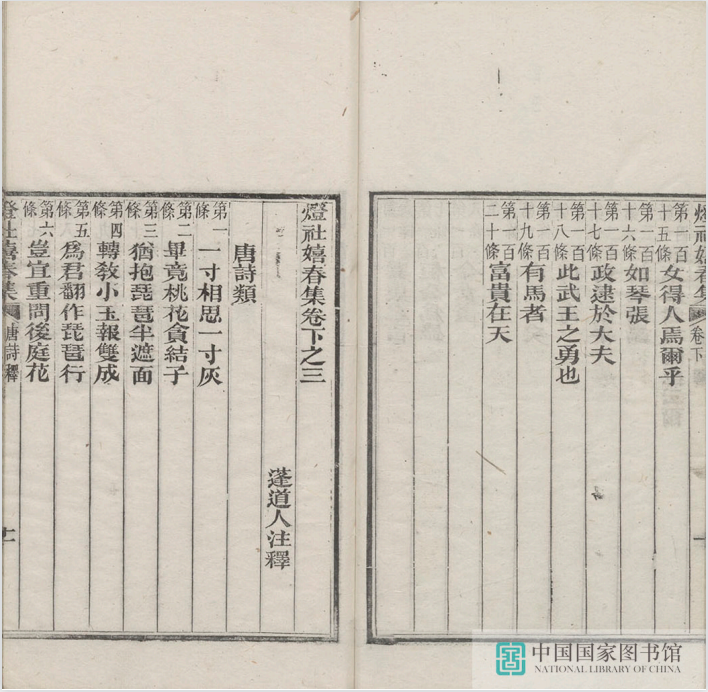 燈社嬉春集 卷下
第一百十五條 女得人焉爾乎
第一百十六條 如琴張
第一百十七條 政逮於大夫
第一百十八條 此武王之勇也
第一百十九條 有馬者
第一百二十條 富貴在天
燈社嬉春集卷下之三
蓬道人注釋
唐詩類
第一條 一寸相思一寸灰
第二條 畢竟桃花貪結子
第三條 猶抱琵琶半遮面
第四條 轉教小玉報雙成
第五條 爲君翻作琵琶行
第六條 豈宜重問後庭花
燈社嬉春集 唐詩釋
中国国家图书馆
NATIONAL LIBRARY OF CHINA